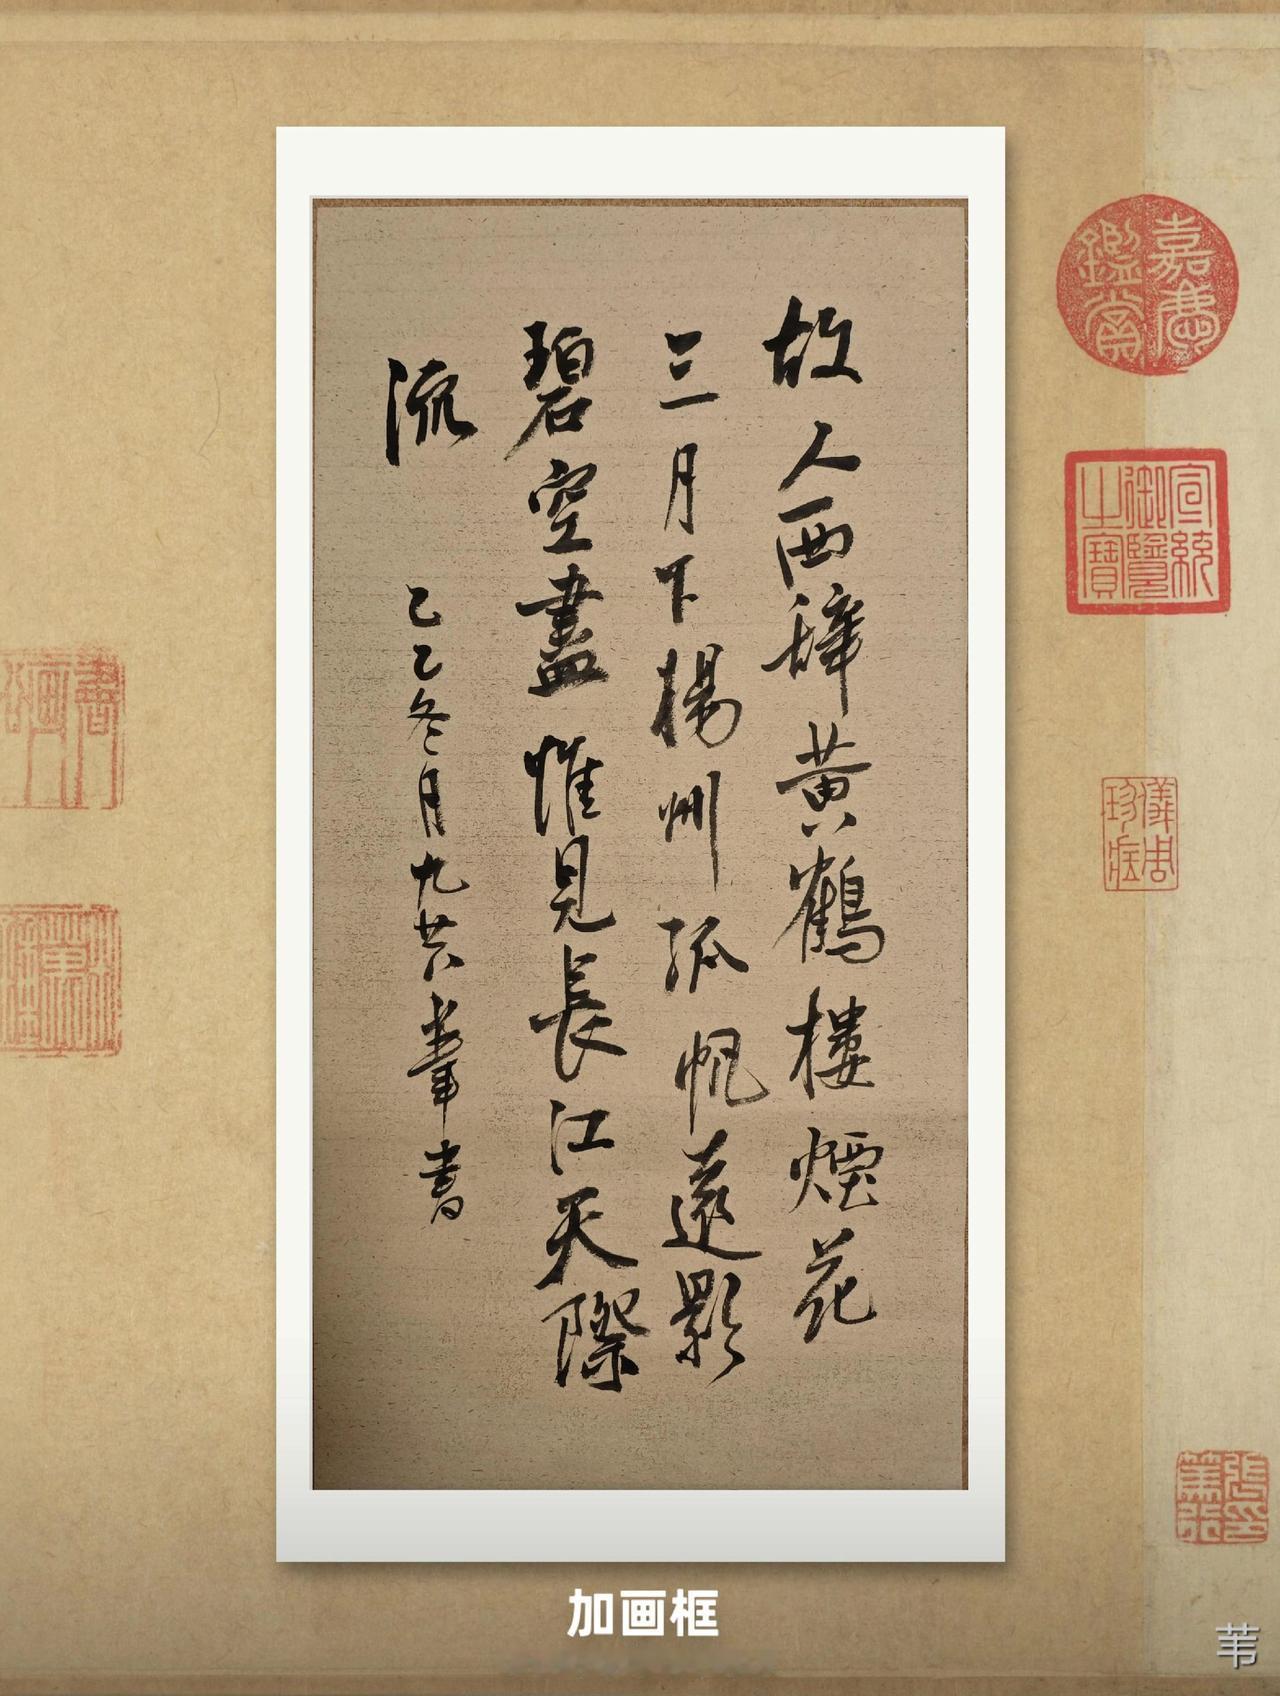 故人西辞黄鶴樓煙花
三月下揚州孤帆遠影
碧空盡惟見長江天際
流
乙乙冬月九廿八葦書
嘉慶鑑賞
宣統御覽之寶
儀周珍藏
加画框
苇